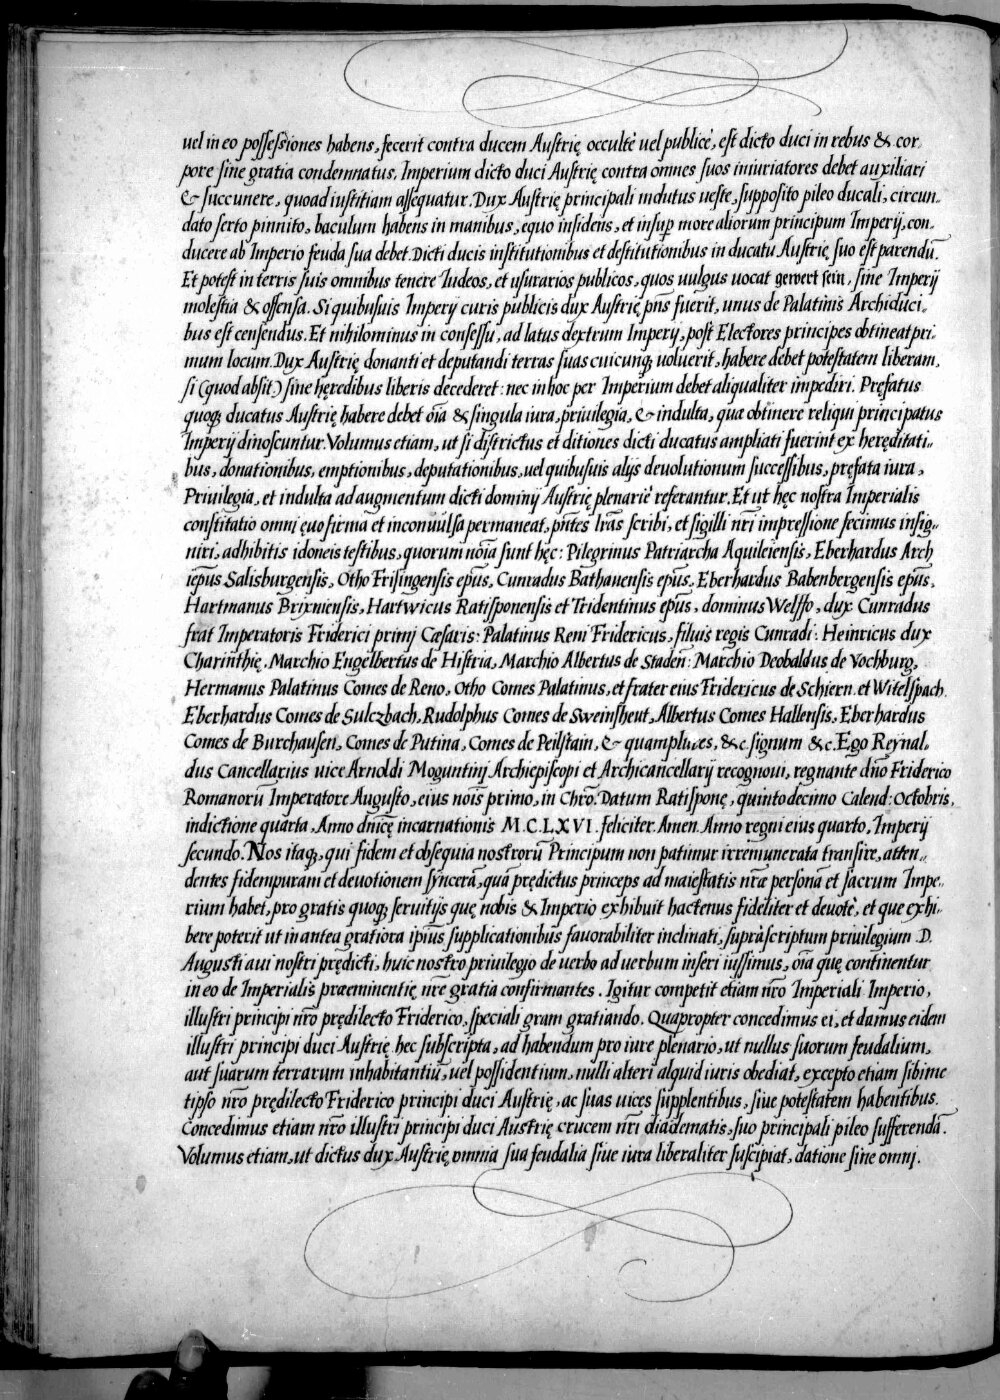 uel in eo possessiones habens, fecerit contra ducem Austrię occultè uel publicè, est dicto duci in rebus & cor
pore sine gratia condemnatus. Imperium dicto duci Austrię contra omnes suos iniuriatores debet auxiliari
& succunere, quoad iustitiam assequatur. Dux Austrię principali indutus ueste, supposito pileo ducali, circun„
dato serto pinnito, baculum habens in manibus, equo insidens, et insup more aliorum principum Imperij, con„
ducere ab Imperio feuda sua debet. Dicti ducis institutionibus et destitutionibus in ducatu Austrię suo est parendū.
Et potest in terris suis omnibus tenere Iudeos, et usurarios publicos, quos uulgus uocat gewert sein, sine Imperij
molestia & offensa. Si quibusuis Imperij curis publicis dux Austrię pn̄s fuerit, unus de Palatinis Archiduci„
bus est censendus. Et nihilominus in consessu, ad latus dextrum Imperij, post Electores principes obtineat pri„
mum locum. Dux Austrię donanti et deputandi terras suas cuicunq; uoluerit, habere debet potestatem liberam,
si (quod absit) sine hęredibus liberis decederet: nec in hoc per Imperium debet aliqualiter impediri. Pręfatus
quoq; ducatus Austrię habere debet oīa & singula iura, priuilegia, & indulta, qua obtinere reliqui principatus
Imperij dinoscuntur. Volumus etiam, ut si districtus et ditiones dicti ducatus ampliati fuerint ex hęreditati„
bus, donationibus, emptionibus, deputationibus, uel quibusuis alijs deuolutionum successibus, pręfata iura,
Priuilegia, et indulta ad augmentum dicti dominij Austrię plenariè referantur. Et ut hęc nostra Imperialis
constitatio omni ęuo firma et inconuulsa permaneat, pn̄tes lr̄as scribi, et sigilli nr̄i impressione fecimus insig„
niri, adhibitis idoneis testibus, quorum nōia sunt hęc: Pilegrinus Patriarcha Aquileiensis, Eberhardus Arch
iep̄us Salisburgensis, Otho Frisingensis ep̄us, Cunradus Bathauensis ep̄us, Eberhardus Babenbergensis ep̄us,
Hartmanus Brixniensis, Hartwicus Ratisponensis et Tridentinus ep̄us, dominus Welffo, dux Cunradus
frat Imperatoris Friderici primj Cæsaris: Palatinus Reni Fridericus, filuis regis Cunradi: Heinricus dux
Charinthię, Marchio Engelbertus de Histria, Marchio Albertus de Staden: Marchio Deobaldus de Vochburg,
Hermanus Palatinus Comes de Reno, Otho Comes Palatinus, et frater eius Fridericus de Schiern et Witelspach.
Eberhardus Comes de Sulczbach, Rudolphus Comes de Sweinsheut, Albertus Comes Hallensis, Eberhardus
Comes de Burchausen, Comes de Putina, Comes de Peilstain, & quamplures, &c. signum &c. Ego Reynal„
dus Cancellarius uice Arnoldi Moguntinj Archiepiscopi et Archicancellarij recognoui, regnante dn̄o Friderico
Romanorū Imperatore Augusto, eius nōis primo, in Chrō. Datum Ratisponę, quintodecimo Calend: Octobris,
indictione quarta, Anno dn̄icę incarnationis M.C.LXVI. feliciter. Amen. Anno regni eius quarto, Imperij
secundo. Nos itaq;, qui fidem et obsequia nostrorū Principum non patimur irremunerata transire, atten„
dentes fidem puram et deuotionem synceră, quā prędictus princeps ad maiestatis nr̄æ personā et sacrum Impe„
rium habet, pro gratis quoq; seruitijs quę nobis & Imperio exhibuit hactenus fideliter et deuotè, et que exhi„
bere poterit ut in antea gratiora ipīus supplicationibus fauorabiliter inclinati, supràscriptum priuilegium D.
Augusti aui nostri prędicti, huic nostro priuilegio de uerbo ad uerbum inseri iussimus, oīa quę continentur
in eo de Imperialis præeminentię nr̄e gratia confirmantes. Igitur competit etiam nr̄o Imperiali Imperio,
illustri principi nr̄o prędilecto Friderico, speciali gram gratiando. Quapropter concedimus ei, et damus eidem
illustri principi duci Austrię hec subscripta, ad habendum pro iure plenario, ut nullus suorum feudalium,
aut suarum terrarum inhabitantiū, uel possidentium, nulli alteri alquid iuris obediat, excepto etiam sibime
tipso nr̄o prędilecto Friderico principi duci Austrię, ac suas uices supplentibus, siue potestatem habentibus.
Concedimus etiam nr̄o illustri principi duci Austrię crucem nr̄i diadematis, suo principali pileo sufferendā.
Volumus etiam, ut dictus dux Austrię omnia sua feudalia siue iura liberaliter suscipiat, datione sine omnj.